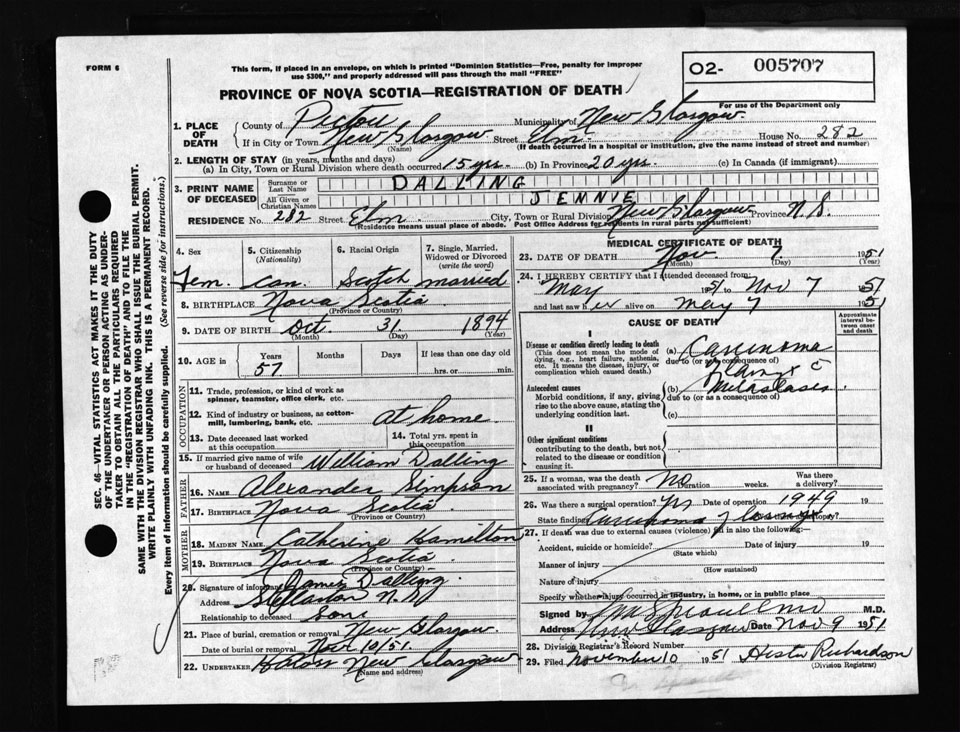 FORM 6
This form, if placed in an envelope, on which is printed "Dominion Statistics—Free, penalty for improper
use $300," and properly addressed will pass through the mail "FREE"
O2- 005707
For use of the Department only
PROVINCE OF NOVA SCOTIA—REGISTRATION OF DEATH
1. PLACE OF DEATH
County of Pictou Municipality of New Glasgow
If in City or Town New Glasgow (Name) Street Elm House No. 282
(If death occurred in a hospital or institution, give the name instead of street and number)
2. LENGTH OF STAY (in years, months and days)
(a) In City, Town or Rural Division where death occurred 15 yrs. (b) In Province 20 yrs. (c) In Canada (if immigrant)
3. PRINT NAME OF DECEASED
Surname or Last Name DALLING
All Given or Christian Names JENNIE
RESIDENCE No. 282 Street Elm City, Town or Rural Division New Glasgow Province N.S.
(Residence means usual place of abode. Post Office Address for residents in rural parts not sufficient)
4. Sex
Fem.
5. Citizenship (Nationality)
Can.
6. Racial Origin
Scotch
7. Single, Married, Widowed or Divorced (write the word)
married
8. BIRTHPLACE Nova Scotia
(Province or Country)
9. DATE OF BIRTH Oct. 31. 1894
(Month) (Day) (Year)
10. AGE in Years Months Days If less than one day old
57 hrs. or min.
OCCUPATION
11. Trade, profession, or kind of work as
spinner, teamster, office clerk, etc.
12. Kind of industry or business, as cotton-
mill, lumbering, bank, etc. At home
13. Date deceased last worked
at this occupation
14. Total yrs. spent in
this occupation
15. If married give name of wife
or husband of deceased William Dalling
FATHER
16. NAME Alexander Simpson
17. BIRTHPLACE Nova Scotia
(Province or Country)
MOTHER
18. MAIDEN NAME Catherine Hamilton
19. BIRTHPLACE Nova Scotia
(Province or Country)
20. Signature of informant James Dalling
Address Stellarton N.S.
Relationship to deceased Son
21. Place of burial, cremation or removal New Glasgow.
Date of burial or removal Nov 10/51.
22. UNDERTAKER New Glasgow
(Name and address)
MEDICAL CERTIFICATE OF DEATH
23. DATE OF DEATH Nov. 7 1951
(Month) (Day) (Year)
24. I HEREBY CERTIFY that I attended deceased from:
May 1951 to Nov 7 1951
and last saw her alive on May 7 1951
CAUSE OF DEATH
Approximate interval between onset and death
I
Disease or condition directly leading to death
(This does not mean the mode of
dying, e.g., heart failure, asthenia,
etc. It means the disease, injury, or
complication which caused death.)
(a) Carcinoma
due to (or as a consequence of)
Antecedent causes
Morbid conditions, if any, giving
rise to the above cause, stating the
underlying condition last.
(b) metastases
due to (or as a consequence of)
(c)
II
Other significant conditions
contributing to the death, but not
related to the disease or condition
causing it.
25. If a woman, was the death
associated with pregnancy? No Duration weeks. Was there
a delivery?
26. Was there a surgical operation? Yes Date of operation 1949 19
State findings Carcinoma of
27. If death was due to external causes (violence) fill in also the following:
Accident, suicide or homicide? Date of injury 19
(State which)
Manner of injury
(How sustained)
Nature of injury
Specify whether injury occurred in industry, in home, or in public place
Signed by M.D.
Address New Glasgow Date Nov 9 1951
28. Division Registrar's Record Number
29. Filed November 10 1951 Hester Richardson
(Division Registrar)
SEC. 46—VITAL STATISTICS ACT MAKES IT THE DUTY
OF THE UNDERTAKER OR PERSON ACTING AS UNDER-
TAKER TO OBTAIN ALL THE PARTICULARS REQUIRED
IN THE "REGISTRATION OF DEATH" AND TO FILE THE
SAME WITH THE DIVISION REGISTRAR WHO SHALL ISSUE THE BURIAL PERMIT.
WRITE PLAINLY WITH UNFADING INK. THIS IS A PERMANENT RECORD.
Every item of information should be carefully supplied. (See reverse side for instructions.)